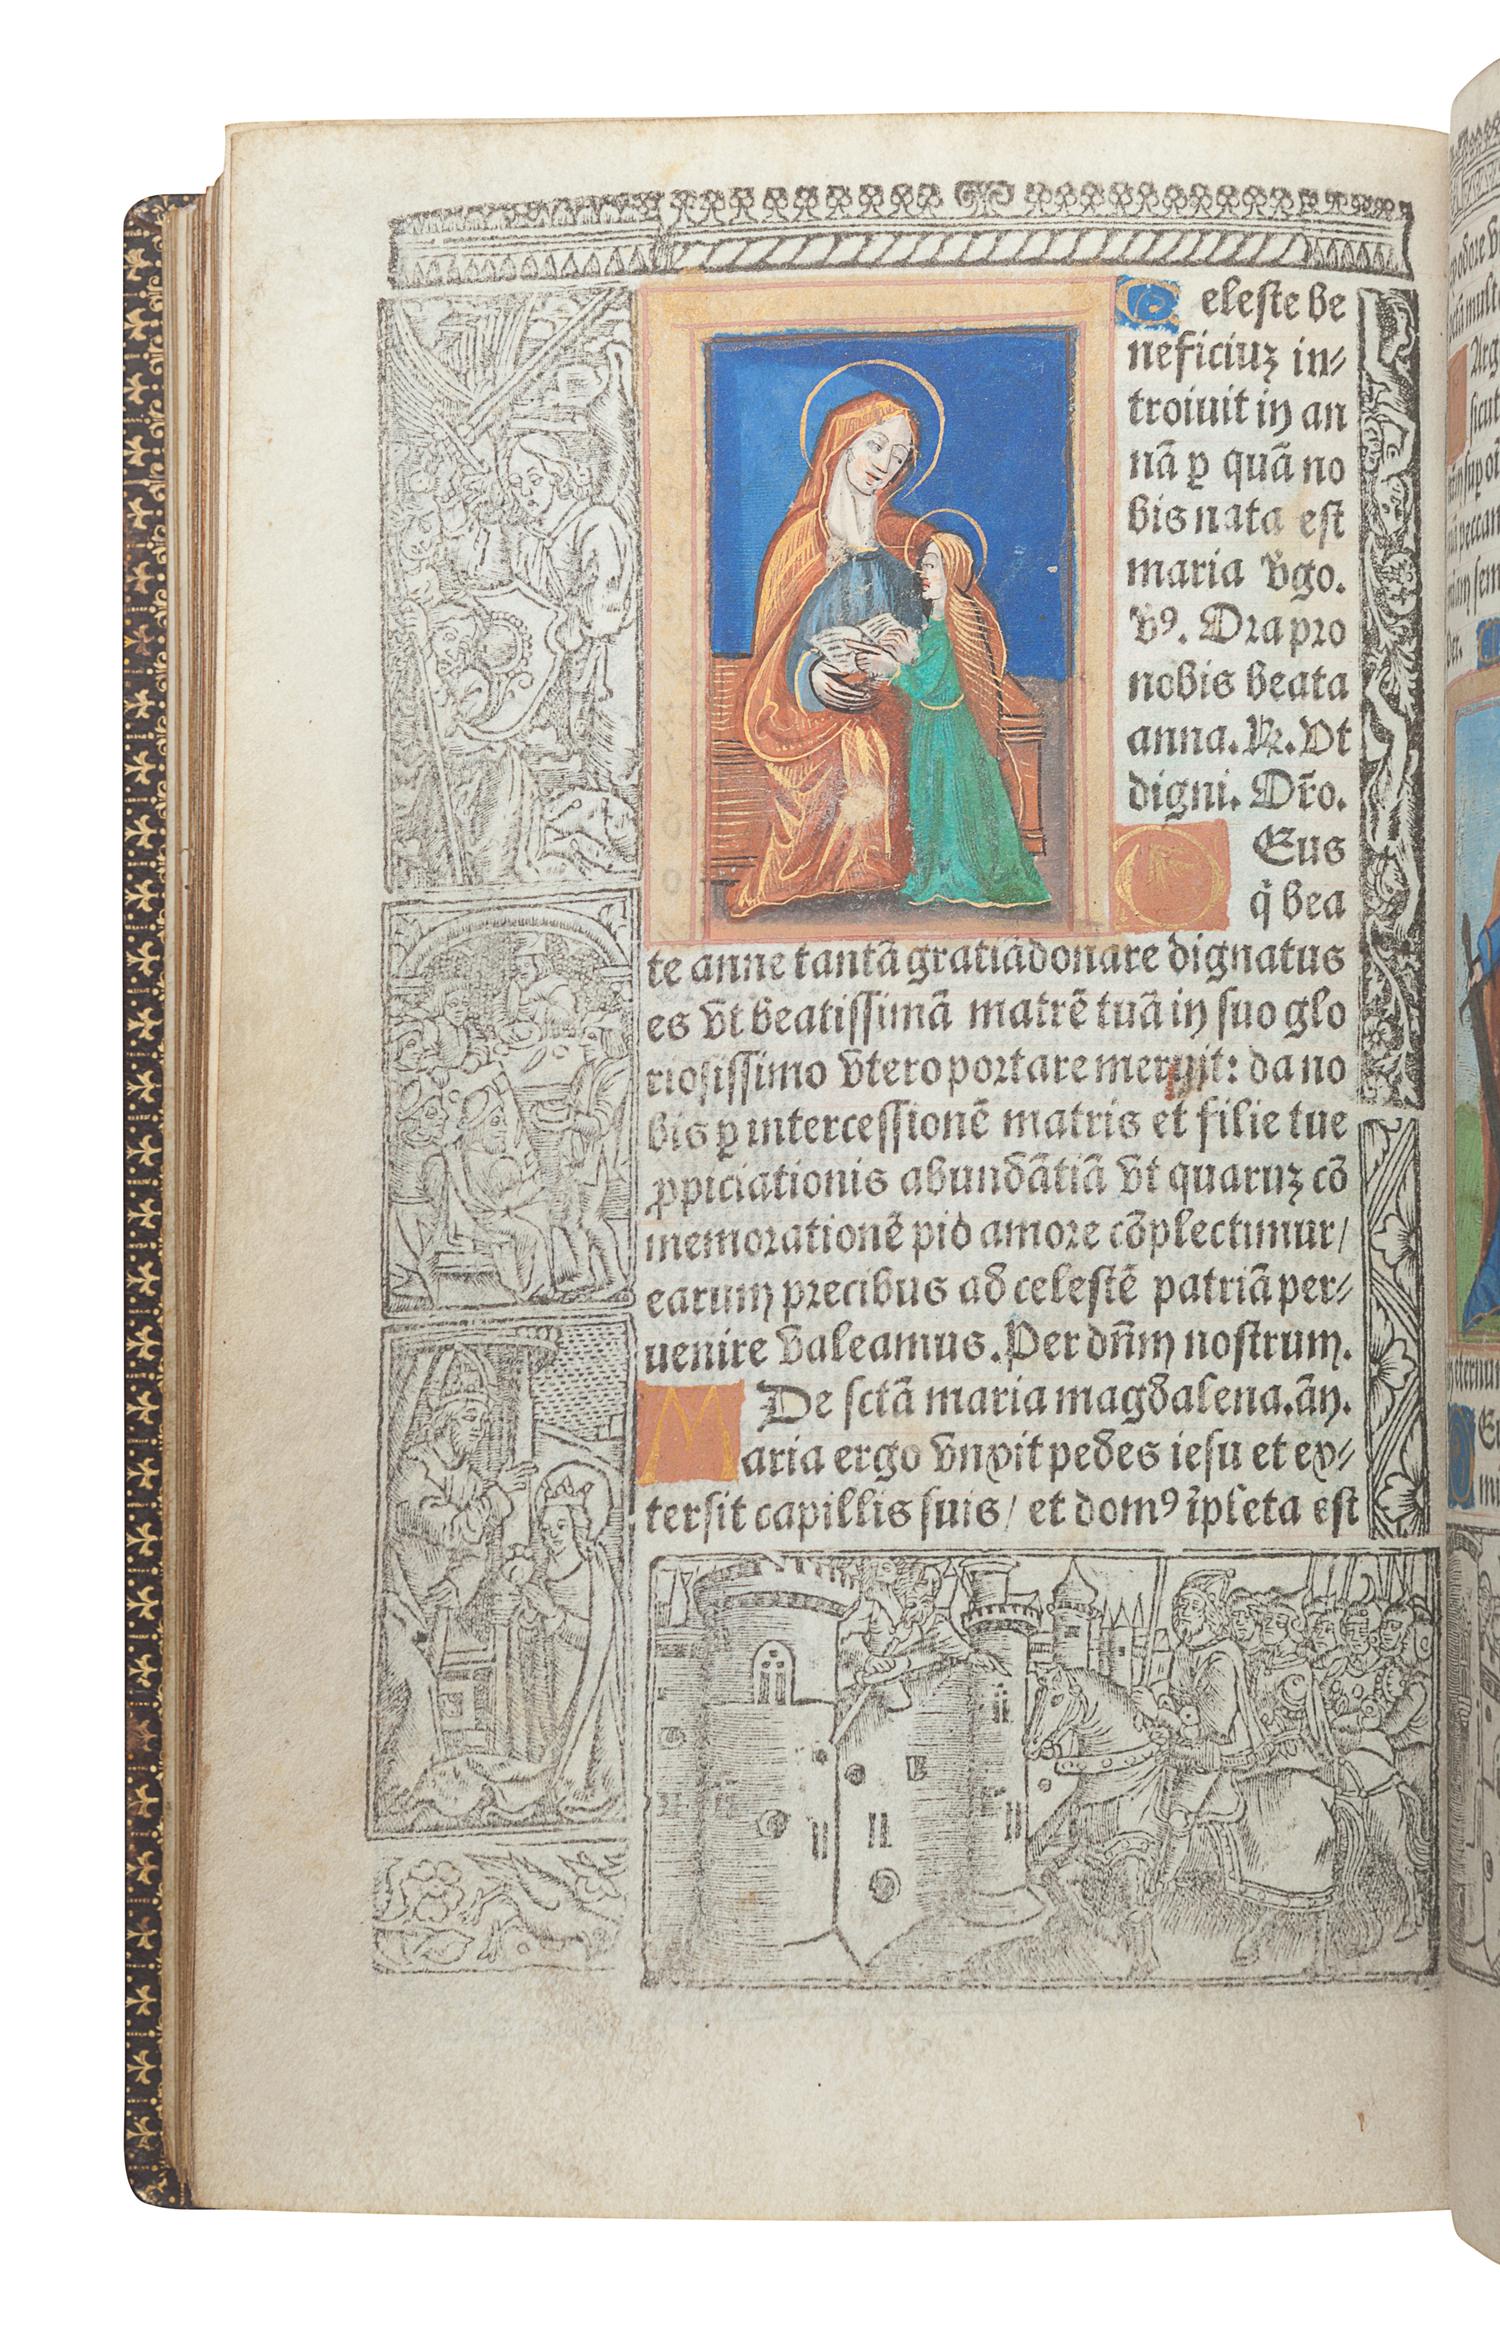 C eleste be
neficiuꝫ in⸗
troiuit in an
nā ꝑ quā no
bis nata est
maria v̄go.
v̄ꝰ. Ora pro
nobis beata
anna. ꝶ. Vt
digni. Or̄o.
Eus
q̇ bea
te anne tantā gratiā donare dignatus
es vt beatissimā matrē tuā in suo glo
riosissimo vtero portare meruit: da no
bis ꝑ intercessionē matris et filie tue
ꝓpiciationis abundātiā vt quaruꝫ cō
memorationē pio amore cōplectimur/
earum precibus ad celestē patriā per⸗
uenire valeamus. Per dn̄m nostrum.
De sctā maria magdalena. ān.
Maria ergo vnxit pedes iesu et ex⸗
tersit capillis suis/ et domꝰ īpleta est